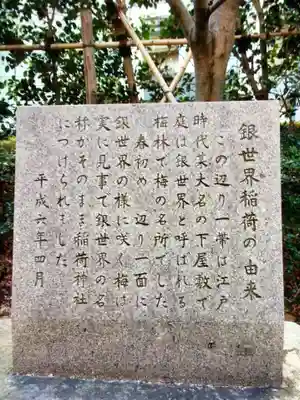 銀世界稲荷の由来
この辺り一帯は江戸
時代某大名の下屋敷で
庭は銀世界と呼ばれる
梅林で梅の名所でした
春初め 辺り一面に
銀世界の様に咲く梅は
実に見事で銀世界の名
称がそのまま稲荷神社
につけられました
平成六年四月